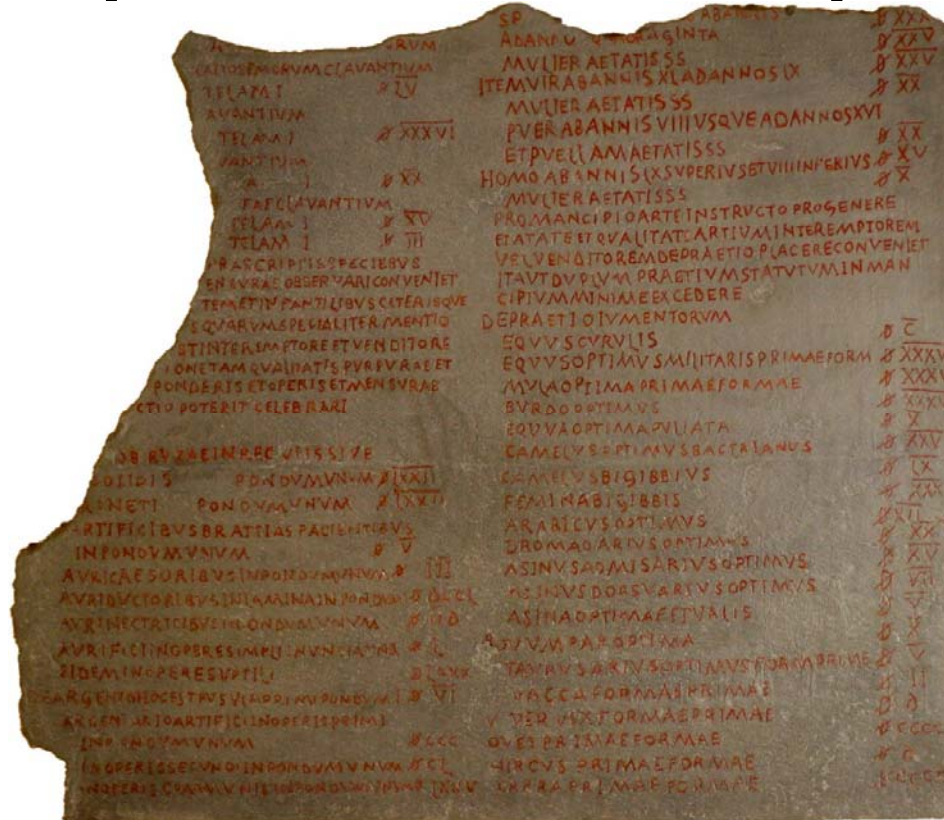 RUM
CALTOSEMORUM CLAVANTIUM
TELAM I 𐆖 I̅V̅
AVANTIUM
TELAM I 𐆖 X̅X̅X̅V̅I̅
VANTIUM
I 𐆖 X̅X̅
CLAVANTIUM
TELAM I 𐆖 X̅V̅
TELAM I 𐆖 I̅I̅I̅
PRASCRIPTIS SPECIEBVS
ENSVRAE OBSERVARI CONVENIET
TEM ET IN PANTILIBVS CETERISQVE
S QVARVM SPECIALITER MENTIO
ST INTER EMPTORE ET VENDITORE
IONE TAM QVALITATIS PVRPVRAE ET
PONDERIS ET OPERIS ET MENSVRAE
CTIO POTERIT CELEBRARI
OBRVZAE IN REGVLIS SIVE
SOLIDIS PONDVM VNVM 𐆖 L̅X̅X̅I̅I̅
NETI PONDVM VNVM 𐆖 L̅X̅X̅I̅I̅
ARTIFICIBVS BRATTIAS FACIENTIBVS
IN PONDVM VNVM 𐆖 V̅
AVRICAESORIBVS IN PONDVM VNVM 𐆖 I̅I̅I̅
AVRIDVCTORIBVS IN LAMINA IN PONDVM
AVRINECTRICIBVS IN PONDVM VNVM
AVRIFICI IN OPERE SIMPLI IN VNCIAM VNAM 𐆖 L
EIDEM IN OPERE SVPTILI 𐆖 LXXX
𐆖 V̅I̅
ARGENTARIO ARTIFICI IN OPERIS PRIMI
IN PONDVM VNVM 𐆖 CCC
IN OPERIS SECVNDI IN PONDVM VNVM 𐆖 CL
IN OPERIS COMMVNIS IN PONDVM VNVM 𐆖 LXXV
SP AB ANNIS 𐆖 X̅X̅X̅
AD ANN QVADRAGINTA 𐆖 X̅X̅V̅
MVLIER AETATIS SS 𐆖 X̅X̅V̅
ITEM VIR AB ANNIS XL AD ANNOS LX 𐆖 X̅X̅
MVLIER AETATIS SS
PVER AB ANNIS VIII VSQVE AD ANNOS XVI
ET PVELLAM AETATIS SS 𐆖 X̅X̅
HOMO AB ANNIS LX SVPERIVS ET VIII INFERIVS 𐆖 X̅V̅
MVLIER AETATIS SS 𐆖 X̅
PRO MANCIPIO ARTE INSTRVCTO PRO GENERE
ET ATATE ET QVALITATE ARTIVM INTER EMPTOREM
VEL VENDITOREM DE PRAETIO PLACERE CONVENIET
ITA VT DVPLVM PRAETIVM STATVTVM IN MAN
CIPIVM MINIME EXCEDERE
DE PRAETIO IVMENTORVM
EQVVS CVRVLIS 𐆖 C̅
EQVVS OPTIMVS MILITARIS PRIMAE FORM 𐆖 X̅X̅X̅V̅
MVLA OPTIMA PRIMAE FORMAE 𐆖 X̅X̅X̅
BVRDO OPTIMVS 𐆖 X̅X̅X̅
EQVVA OPTIMA PVLIATA 𐆖 X̅
CAMELVS OPTIMVS BACTRIANVS 𐆖 X̅X̅V̅
CAMELVS BIGIBBIVS 𐆖 L̅X̅
FEMINA BIGIBBIS 𐆖 X̅X̅X̅
ARABICVS OPTIMVS 𐆖 X̅I̅I̅
DROMADARIVS OPTIMVS 𐆖 X̅X̅
ASINVS ADMISARIVS OPTIMVS 𐆖 X̅V̅
ASINVS DORSVARIVS OPTIMVS 𐆖 V̅I̅I̅
ASINA OPTIMA FETVRALIS 𐆖 V̅
BOVVM PAR OPTIMA 𐆖 X̅
TAVRVS ARIVS OPTIMVS FORM PRIME 𐆖 V̅
VACCA FORMAE PRIMAE 𐆖 I̅I̅
VERVIX FORMAE PRIMAE 𐆖 D
OVES PRIMAE FORMAE 𐆖 CCCC
HIRCVS PRIMAE FORMAE 𐆖
CAPRA PRIMAE FORMAE